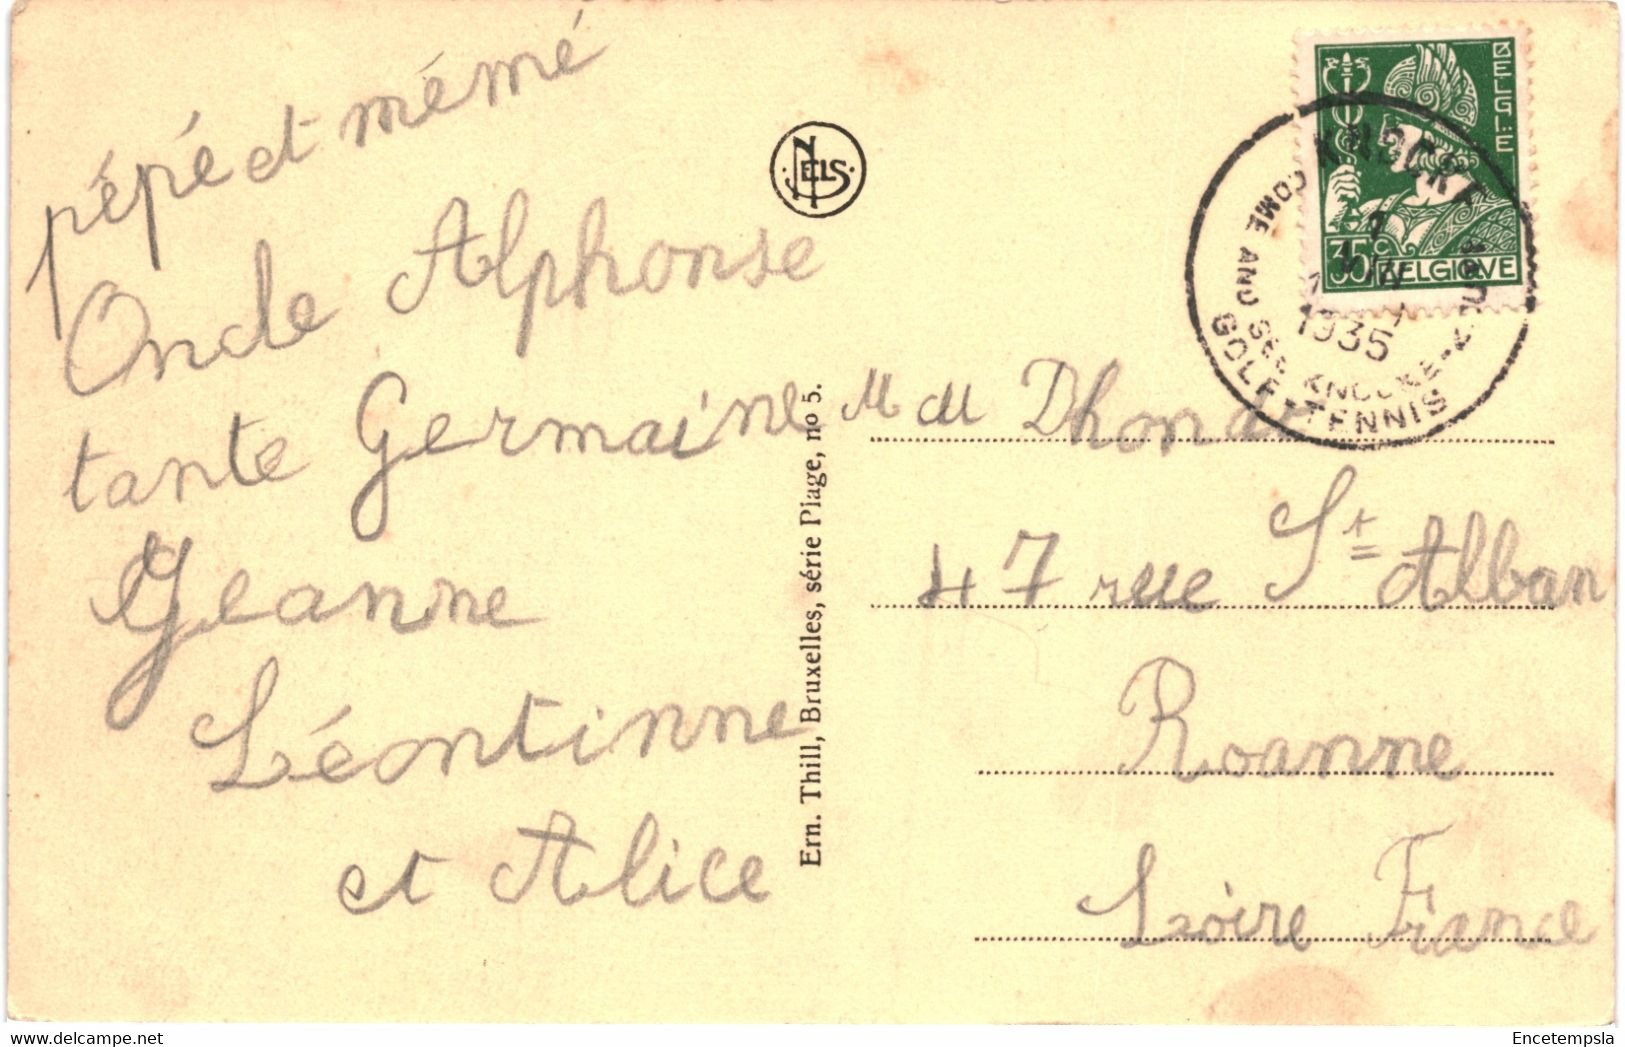 pépé et mémé
Oncle Alphonse
tante Germaine
Jeanne
Léontinne
et Alice
NELS
Ern. Thill, Bruxelles, série Plage, no 5.
BELGIË
35c
BELGIQUE
COME AND SEE KNOCKE-ZOUTE
GOLF-TENNIS
1935
M
47 rue St Alban
Roanne
Loire France
Encetempsla